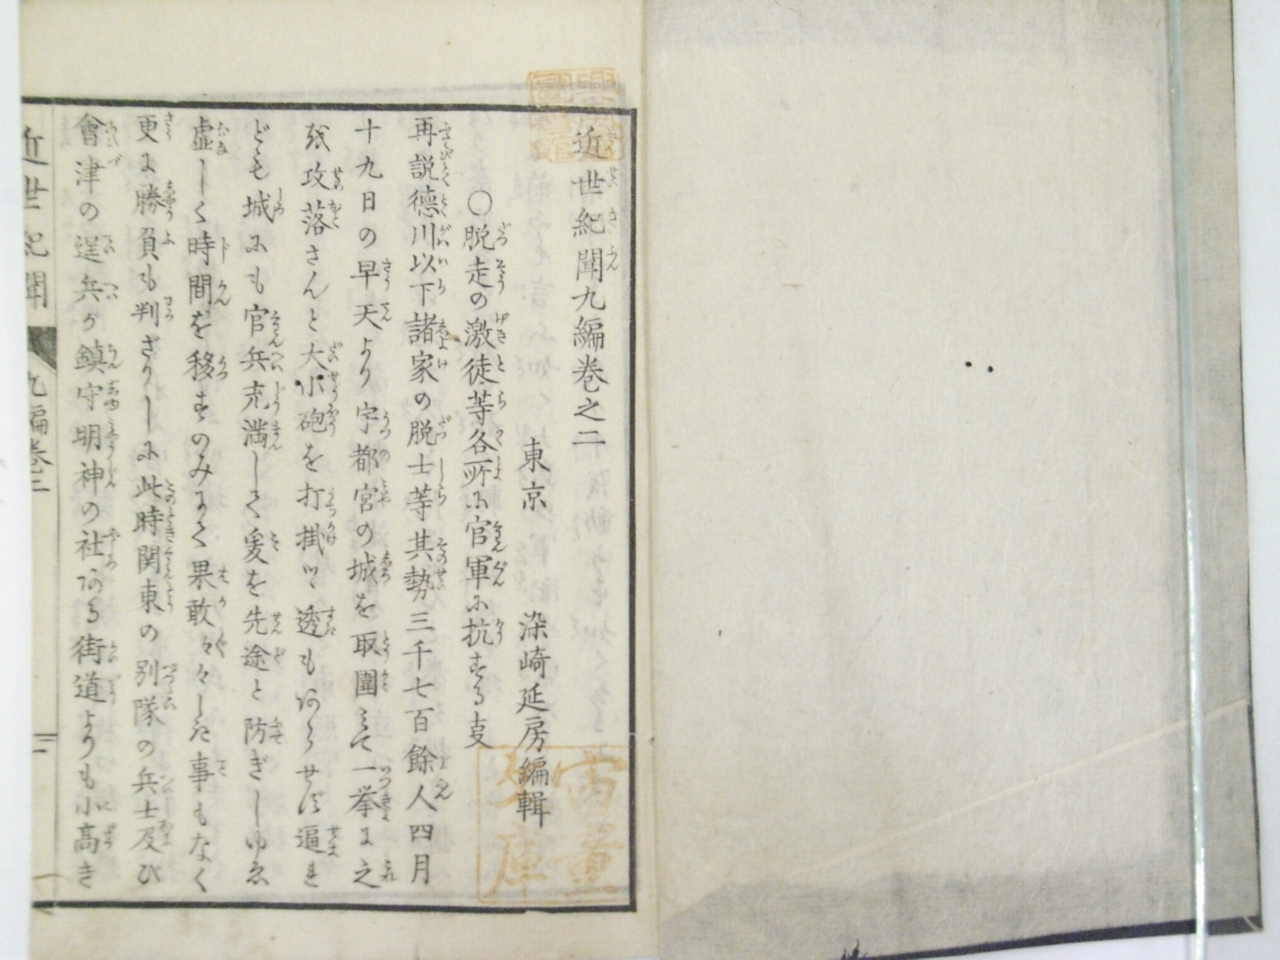 近世紀聞九編巻之二
東京 染崎延房編輯
○脱走の激徒等各所に官軍に抗する支
再説徳川以下諸家の脱士等其勢三千七百餘人四月
十九日の早天より宇都宮の城を取圍みて一挙に之
を攻落さんと大小砲を打掛て透もあらせず逼れ
ども城にも官兵充満して爰を先途と防ぎしゆゑ
虚しく時間を移すのみにて果敢々々しき事もなく
更に勝負も判ざりしに此時関東の別隊の兵士及び
會津の逞兵が鎮守明神の社ある街道よりも小高き
近世紀聞
九編巻二